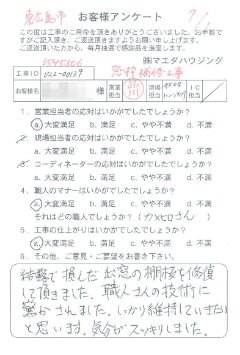 東広島市 お客様アンケート
この度は工事のご用命を頂きありがとうございました。お手数で
すがご記入頂き、ご返送頂きますようお願い申し上げます。
ご返送頂いた方から、毎月抽選で感謝品を進呈します。
㈱マエダハウジング
工事ID
お客様名 様 営業担当 現場担当 IC担当
1. 営業担当者の応対はいかがでしたでしょうか?
a.大変満足 b.満足 c.やや不満 d.不満
2. 現場担当者の応対はいかがでしたでしょうか?
a.大変満足 b.満足 c.やや不満 d.不満
3. コーディネーターの応対はいかがでしたでしょうか?
a.大変満足 b.満足 c.やや不満 d.不満
4. 職人のマナーはいかがでしたでしょうか?
a.大変満足 b.満足 c.やや不満 d.不満
それはどの職人でしょうか?
5. 工事の仕上がりはいかがでしたでしょうか?
a.大変満足 b.満足 c.やや不満 d.不満
6. その他、ご意見・ご要望をお書き下さい。
結露で損んだ出窓の棚板を修復
して頂きました。職人さんの技術に
驚かされました。しっかり維持していきたい
と思います。気分がスッキリしました。